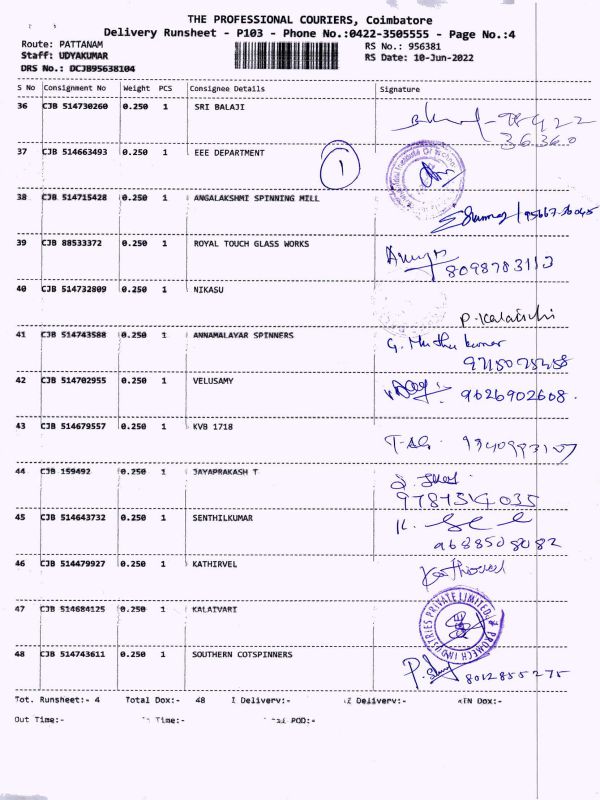 THE PROFESSIONAL COURIERS, Coimbatore
Delivery Runsheet - P103 - Phone No.:0422-3505555 - Page No.:4
Route: PATTANAM
RS No.: 956381
Staff: UDYAKUMAR
RS Date: 10-Jun-2022
DRS No.: DCJB95638104
S No Consignment No Weight PCS Consignee Details Signature
36 CJB 514730260 0.250 1 SRI BALAJI
37 CJB 514663493 0.250 1 EEE DEPARTMENT 1
38 CJB 514715428 0.250 1 ANGALAKSHMI SPINNING MILL
39 CJB 88533372 0.250 1 ROYAL TOUCH GLASS WORKS
8098783113
40 CJB 514732809 0.250 1 NIKASU
P. Kalaichi
41 CJB 514743588 0.250 1 ANNAMALAYAR SPINNERS
G. Muthu kumar
42 CJB 514702955 0.250 1 VELUSAMY
9626902608.
43 CJB 514679557 0.250 1 KVB 1718
44 CJB 159492 0.250 1 JAYAPRAKASH T
9787514035
45 CJB 514643732 0.250 1 SENTHILKUMAR
9688508082
46 CJB 514479927 0.250 1 KATHIRVEL
Kathirvel
47 CJB 514684125 0.250 1 KALAIVARI
PROMECH INDUSTRIES PRIVATE LIMITED
48 CJB 514743611 0.250 1 SOUTHERN COTSPINNERS
8012855275
Tot. Runsheet:- 4 Total Dox:- 48 Delivery:- Delivery:- Dox:-
Out Time:- Time:- POD:-